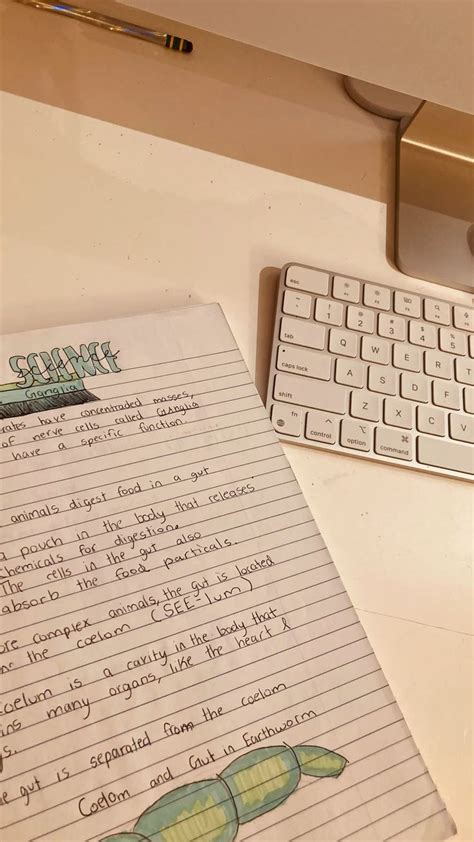 SCIENCE
Ganglia
rates have concentraded masses,
of nerve cells called Ganglia
have a specific function.
animals digest food in a gut
a pouch in the body that releases
chemicals for digestion.
The cells in the gut also
absorb the food particals.
ore complex animals, the gut is located
the coelom (SEE-lum)
coelum is a cavity in the body that
ins many organs, like the heart &
gut is separated from the coelom
Coelom and Gut in Earthworm
esc
1 2 3 4 5
tab Q W E R
caps lock A S D F
shift Z X C V
fn control option command